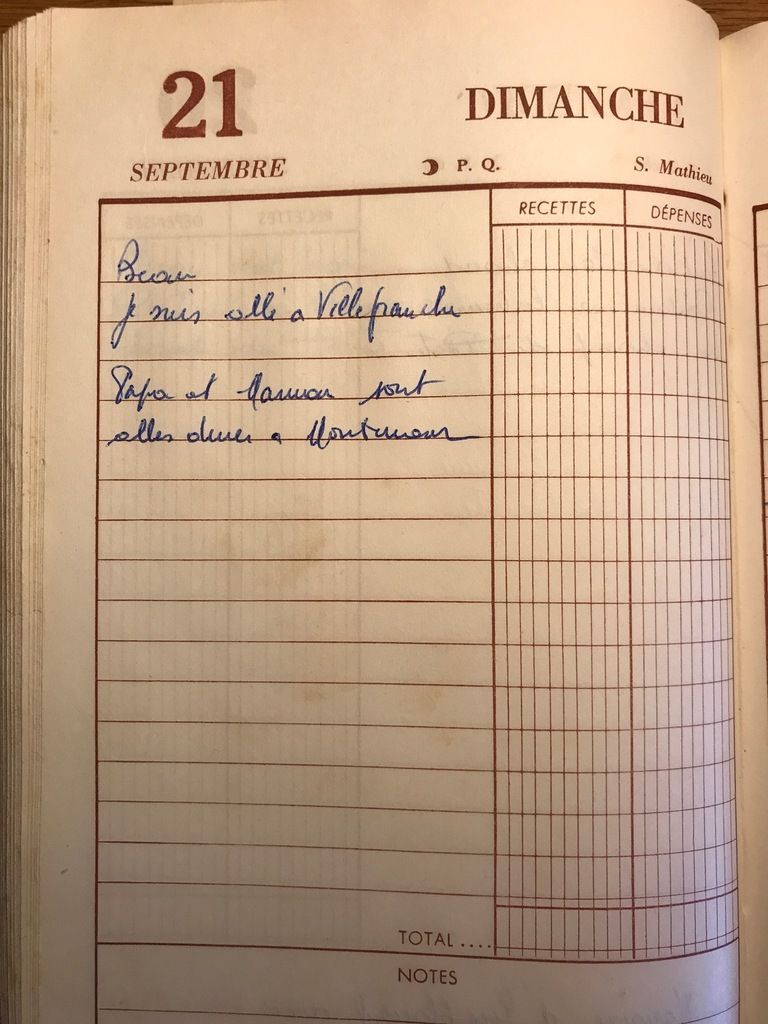 21
DIMANCHE
SEPTEMBRE
P. Q.
S. Mathieu
RECETTES
DÉPENSES
Beau
Je suis allé a Villefranche
Papa et Maman sont
alles diner a
TOTAL ....
NOTES